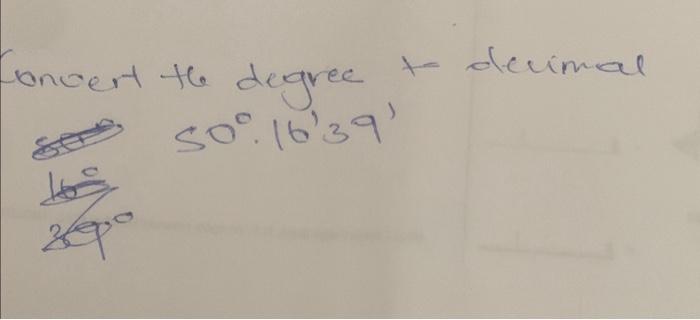 Convert the degree to decimal
50°.16'39'
16°
39°